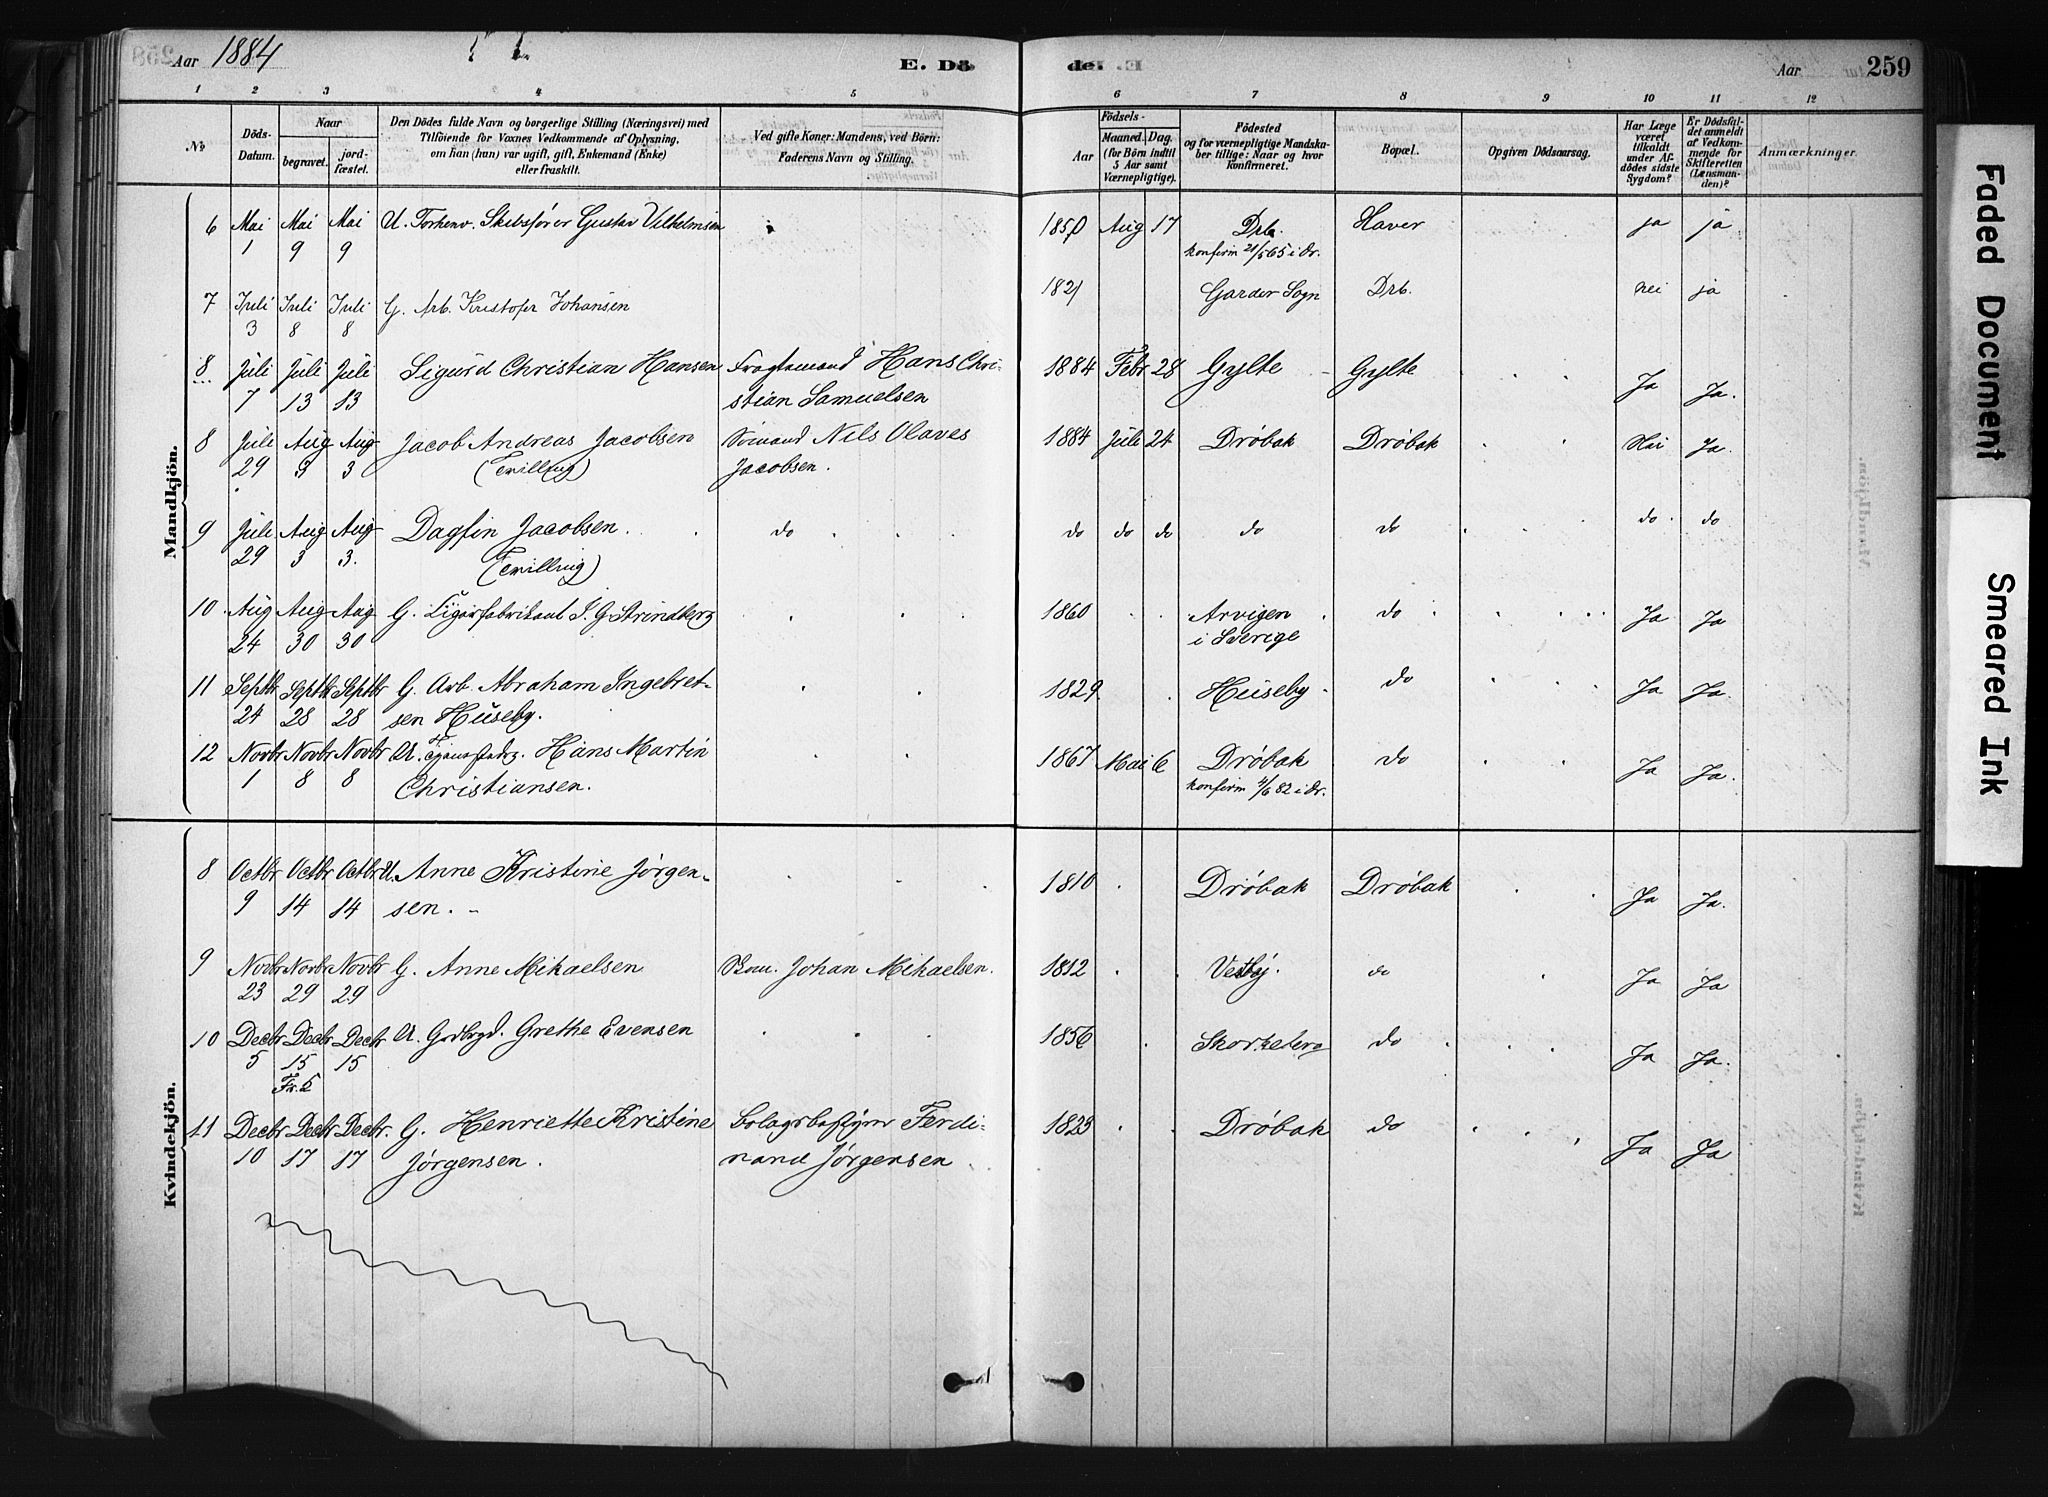 Aar 1884
E. Dö
de. E
Aar
259
1 2 3 4 5 6 7 8 9 10 11 12
No
Döds-Datum.
Naar
begravet.
jord-fæstet.
Den Dödes fulde Navn og borgerlige Stilling (Næringsvei) med
Tilföiende for Voxnes Vedkommende af Oplysning,
om han (hun) var ugift, gift, Enkemand (Enke)
eller fraskilt.
Ved gifte Koner: Mandens, ved Börn:
Faderens Navn og Stilling.
Födsels-
Aar
Maaned. Dag.
(for Börn indtil
5 Aar samt
Værnepligtige).
Födested
og for værnepligtige Mandska-
ber tillige: Naar og hvor
konfirmeret.
Bopæl.
Opgiven Dödsaarsag.
Har Læge
været
tilkaldt
under Af-
dödes sidste
Sygdom?
Er Dödsfal-
det anmeldt
af Vedkom-
mende for
Skifteretten
(Lensman-
den)?
Anmærkninger.
Mandkjön.
6 Mai Mai Mai U. Forhenv. Skibsfører Gustav Vilhelmsen 1850 Aug 17 Drb. Haver ja ja
1 9 9 konfirm 21/5 65 i Dr.
7 Juli Juli Juli G. Arb. Kristofer Johansen 1821 Garder Sogn Drb. nei ja
3 8 8
8 Juli Juli Juli Sigurd Christian Hansen Fragtemand Hans Chri- 1884 Febr 28 Gylte Gylte Ja Ja.
7 13 13 stian Samuelsen
8 Juli Aug Aug Jacob Andreas Jacobsen Sømand Nils Olaves 1884 Juli 24 Drøbak Drøbak Nei Ja.
29 3 3 (Tvilling) Jacobsen.
9 Juli Aug Aug Dagfin Jacobsen. do do do do do do do do
29 3 3. (Tvilling)
10 Aug Aug Aug G. Cigarfabrikant J. G. Strindberg 1860 Arvigen do Ja Ja
24 30 30 i Sverige
11 Septbr Septbr Septbr G. Arb. Abraham Ingebret- 1829 Huseby do Ja Ja.
24 28 28 sen Huseby.
12 Novbr Novbr Novbr U. Hans Martin 1867 Mai 6 Drøbak do Ja Ja.
1 8 8 Christiansen. konfirm 4/6 82 i Dr.
Kvindekjön.
8 Octbr Octbr Octbr U. Anne Kristine Jørgen- 1810 Drøbak Drøbak Ja Ja.
9 14 14 sen.
9 Novbr Novbr Novbr G. Anne Mikaelsen Johan Mikaelsen. 1812 Vestby. do Ja Ja
23 29 29
10 Decbr Decbr Decbr U. Grethe Evensen 1856 Skorkeberg do Ja Ja.
5 15 15
11 Decbr Decbr Decbr. G. Henriette Kristine Bolagsbestyrer Ferdi- 1823 Drøbak do Ja Ja
10 17 17 Jørgensen. nand Jørgensen
Faded Document
Smeared Ink